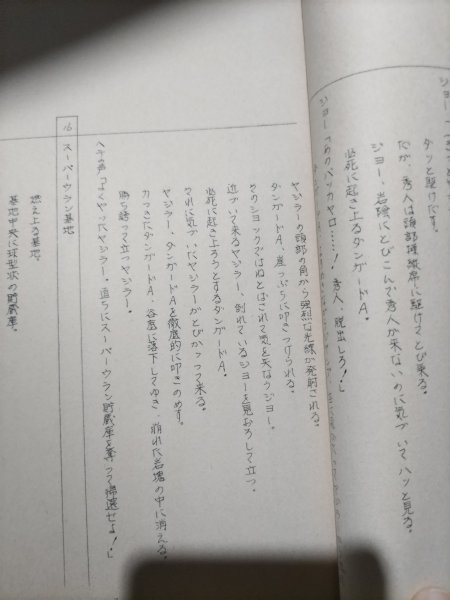 ジョー「
ダッと駆けだす。
だが、秀人は頭部操縦席に駆けてとび乗る。
ジョー、岩陰にとびこんで秀人が来ないのに気づいてハッと見る。
必死に起き上るダンガードA。
ジョー「あのバッカヤロ……！秀人、脱出しろ！」
ヤジラーの頭部の角から強烈な光線が発射される。
ダンガードA、崖っぷちに叩きつけられる。
そのショックではねとばされて気を失なうジョー。
近づいて来るヤジラー、倒れているジョーを見おろして立つ。
必死に起き上ろうとするダンガードA。
それに気づいたヤジラーがとびかかって来る。
ヤジラー、ダンガードAを徹底的に叩きのめす。
力つきたダンガードA、谷底に落下してゆき、崩れた岩塊の中に消える。
勝ち誇って立つヤジラー。
ヘチの声「よくやったヤジラー、直ちにスーパーウラン貯蔵庫を奪って帰還せよ！」
16 スーパーウラン基地
燃え上る基地。
基地中央に球型状の貯蔵庫。